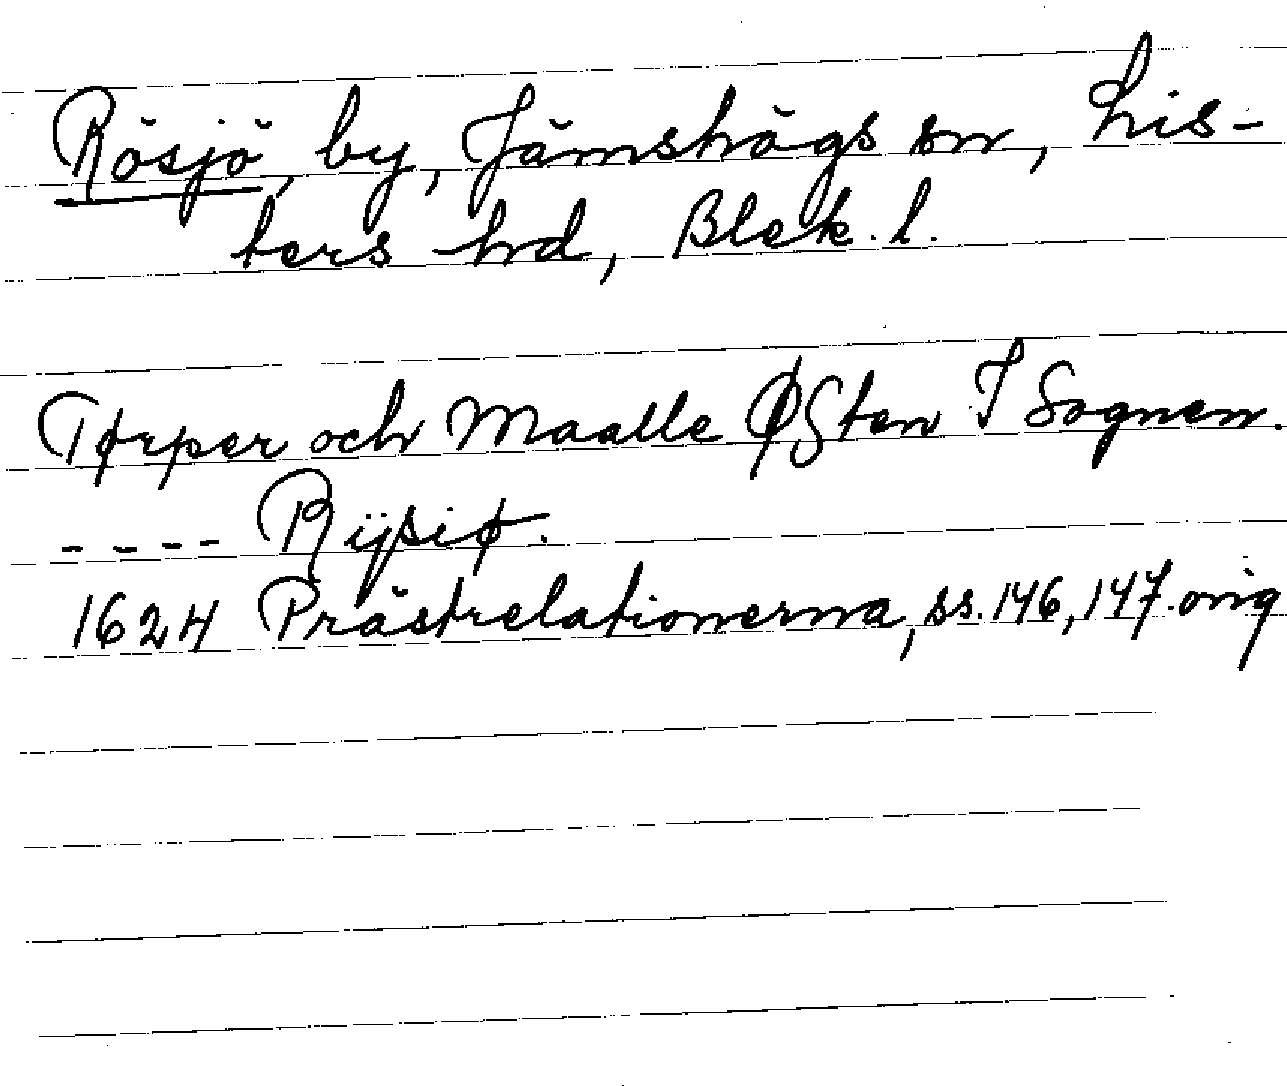 Rösjö, by, Jämshögs sn, Lis-
ters hd, Blek. l.
Tørper och Maalle ØSten I Sognen.
---- Rÿsiø.
1624 Prästrelationerna, ss. 146, 147. orig